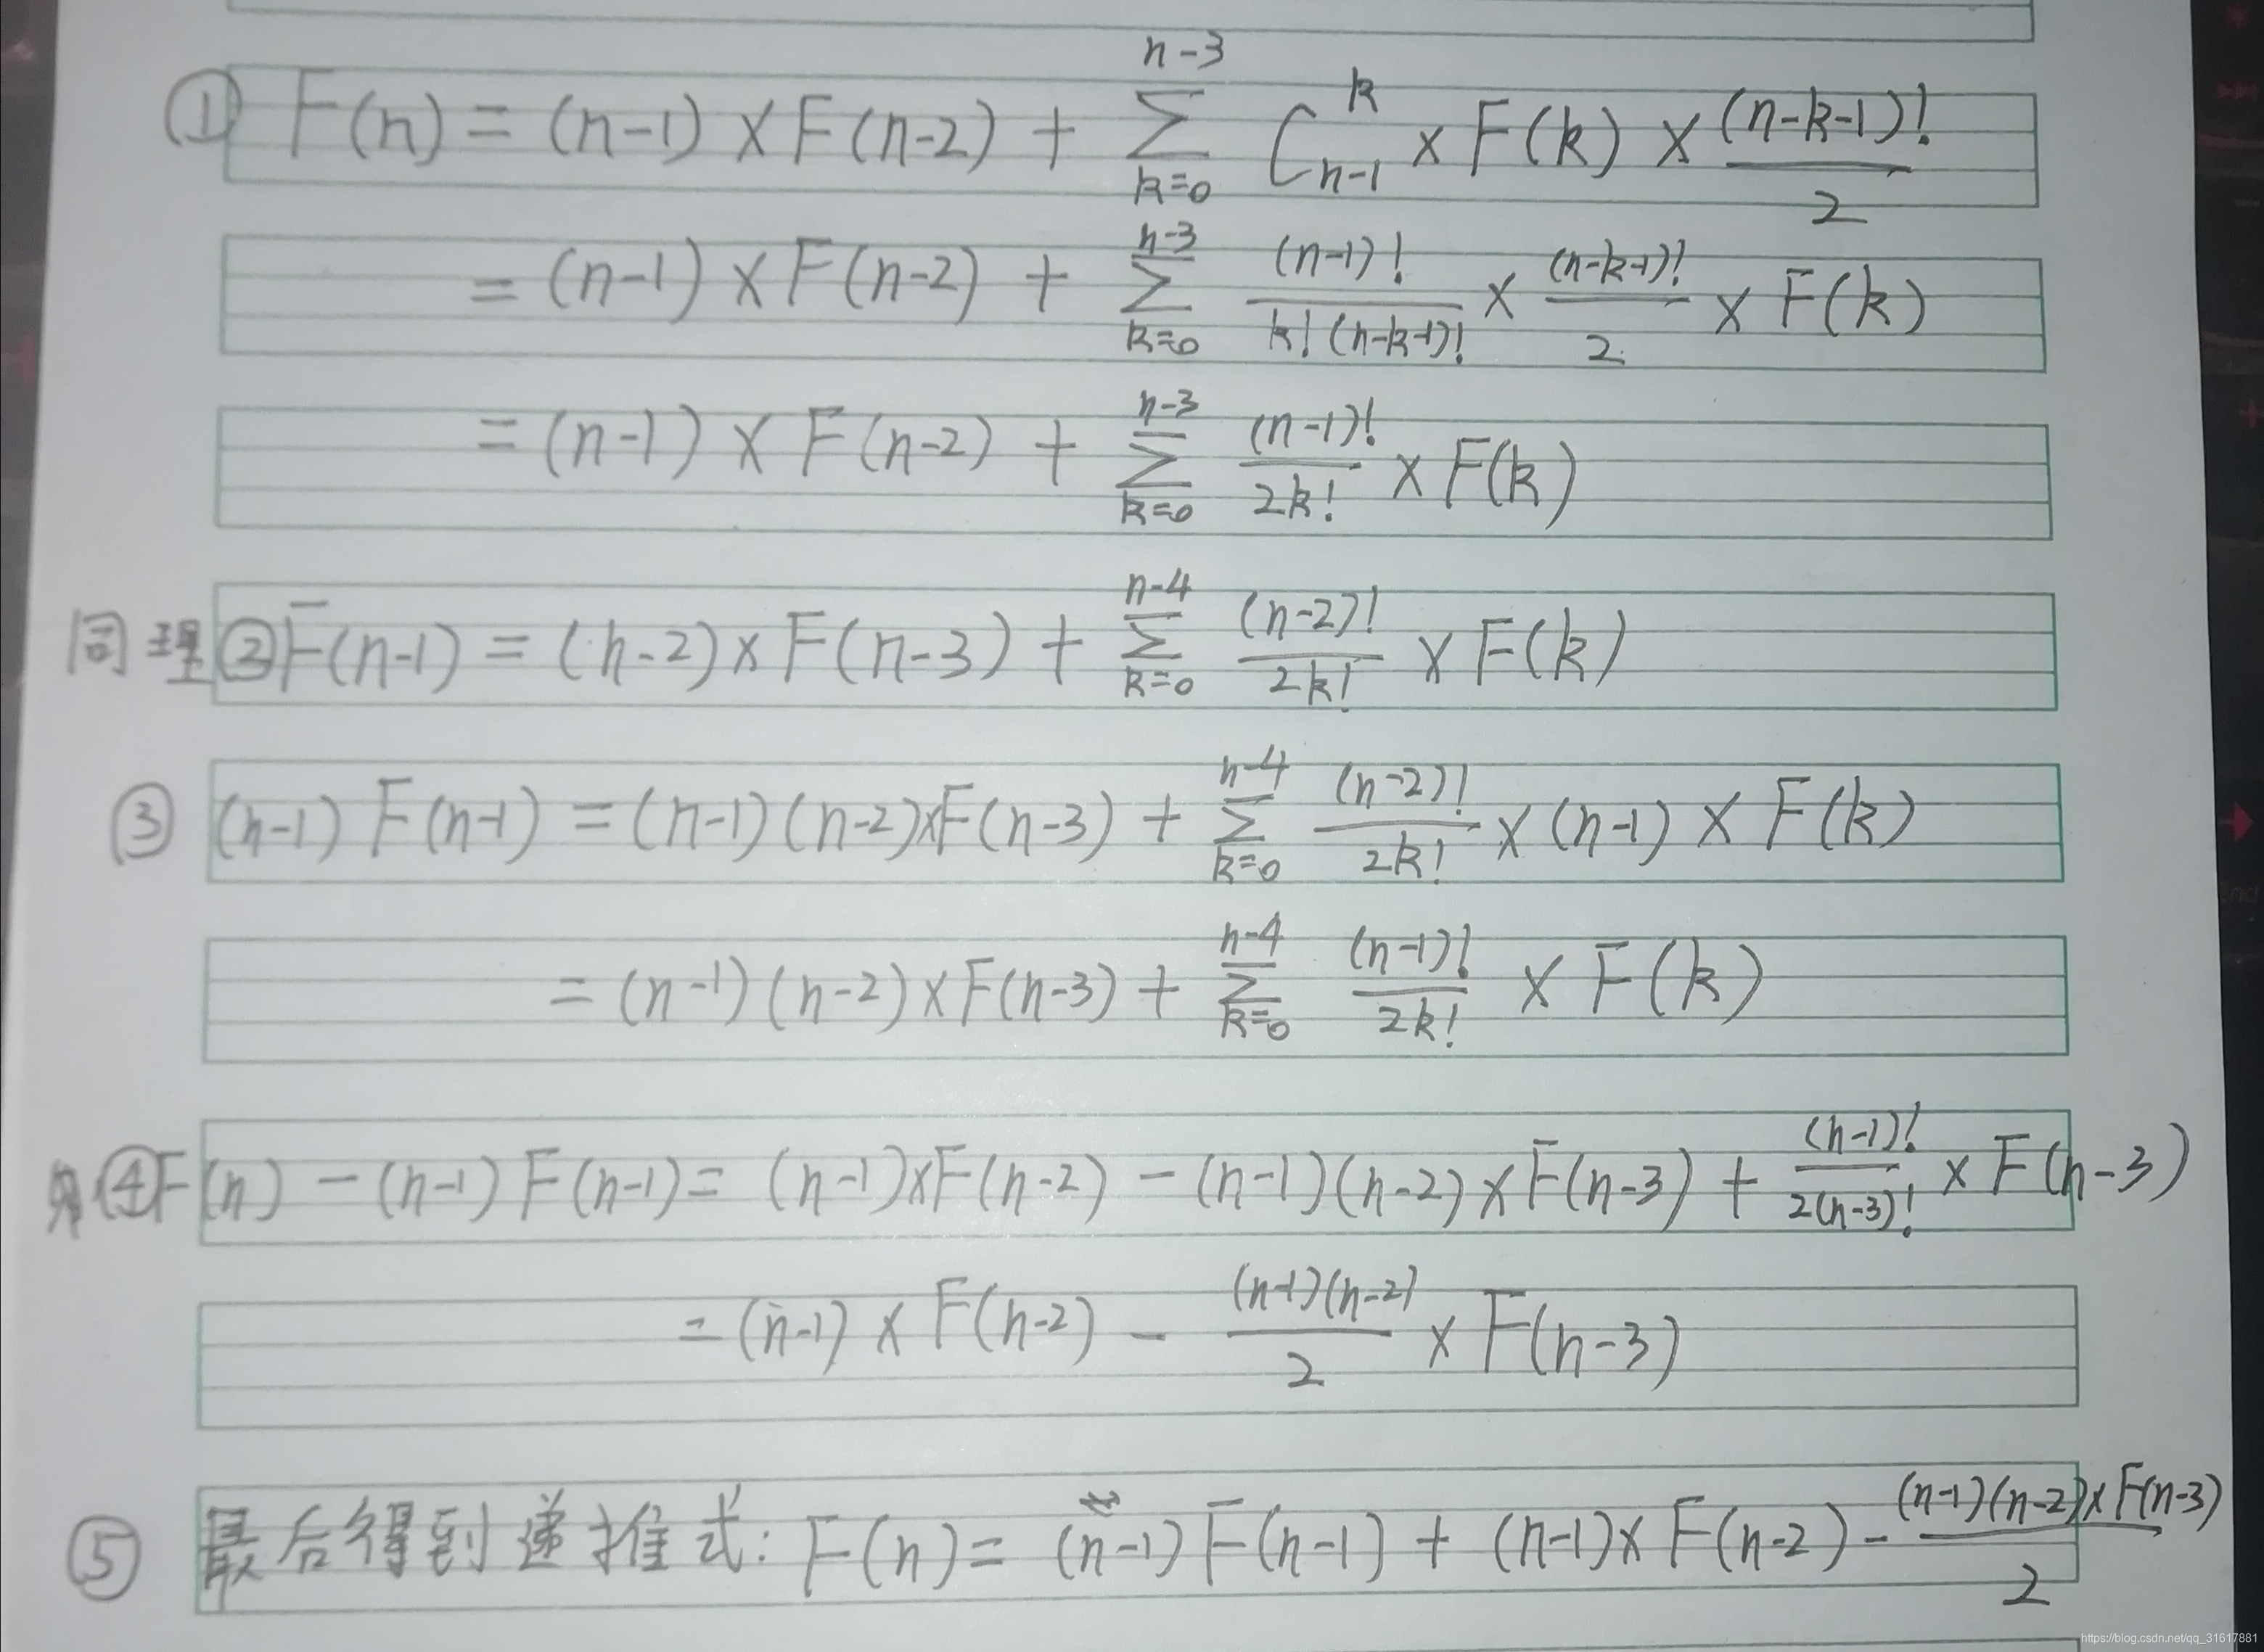 ① F(n) = (n-1) × F(n-2) + \sum_{k=0}^{n-3} C_{n-1}^{k} × F(k) × \frac{(n-k-1)!}{2}
= (n-1) × F(n-2) + \sum_{k=0}^{n-3} \frac{(n-1)!}{k!(n-k-1)!} × \frac{(n-k-1)!}{2} × F(k)
= (n-1) × F(n-2) + \sum_{k=0}^{n-3} \frac{(n-1)!}{2k!} × F(k)
同理 ② F(n-1) = (n-2) × F(n-3) + \sum_{k=0}^{n-4} \frac{(n-2)!}{2k!} × F(k)
③ (n-1) F(n-1) = (n-1)(n-2)×F(n-3) + \sum_{k=0}^{n-4} \frac{(n-2)!}{2k!} × (n-1) × F(k)
= (n-1)(n-2)×F(n-3) + \sum_{k=0}^{n-4} \frac{(n-1)!}{2k!} × F(k)
④ F(n) - (n-1) F(n-1) = (n-1)×F(n-2) - (n-1)(n-2)×F(n-3) + \frac{(n-1)!}{2(n-3)!} × F(n-3)
= (n-1) × F(n-2) - \frac{(n-1)(n-2)}{2} × F(n-3)
⑤ 最后得到递推式: F(n) = (n-1) F(n-1) + (n-1)× F(n-2) - \frac{(n-1)(n-2)×F(n-3)}{2}
https://blog.csdn.net/qq_31617881